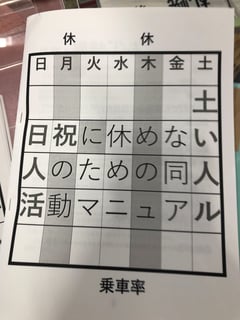 休 休
日 月 火 水 木 金 土
土
日祝に休めない
人のための同人
活動マニュアル
乗車率